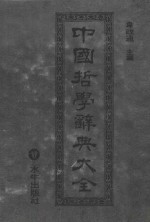 韋政通 主編
中國哲學辭典大全
水牛出版社